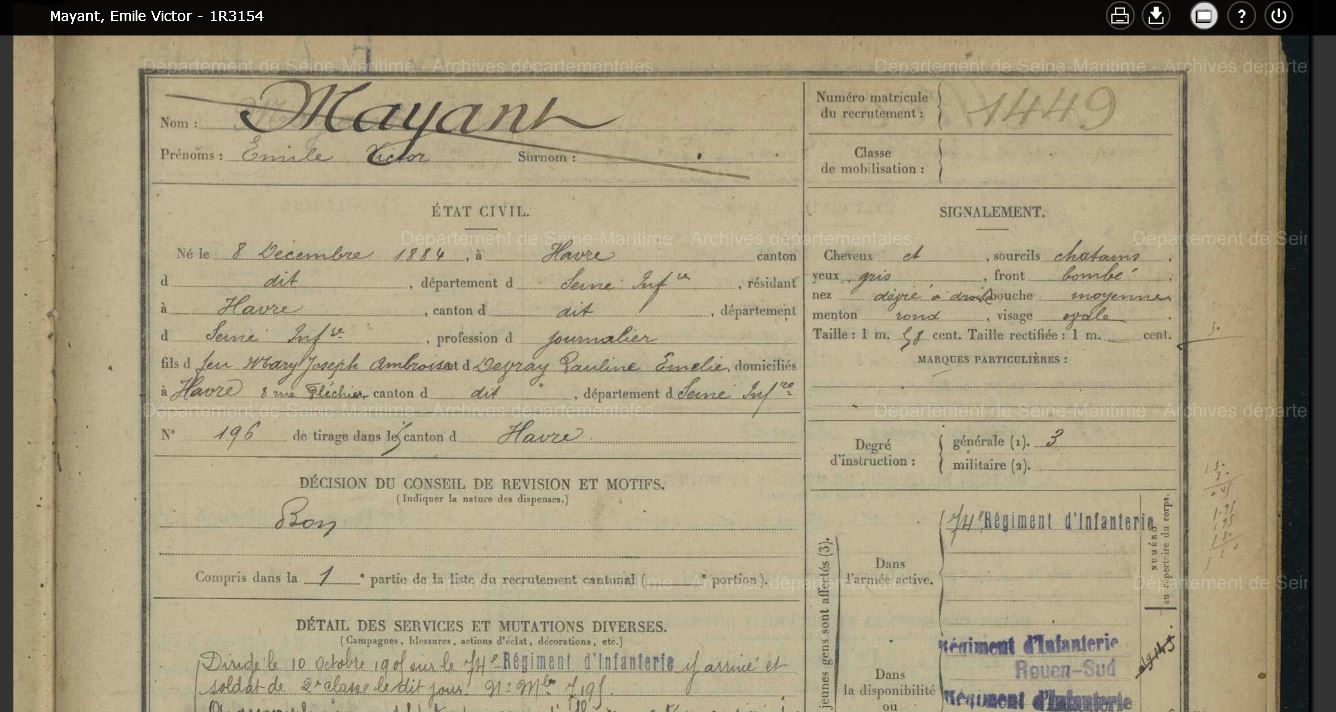 Mayant, Emile Victor - 1R3154
Département de Seine-Maritime - Archives départementales
Département de Seine-Maritime - Archives départe
Nom : Mayant
Prénoms : Emile Victor Surnom :
Numéro matricule du recrutement : 1449
Classe de mobilisation :
ÉTAT CIVIL.
Né le 8 Décembre 1884, à Havre canton
d dit, département d Seine Infre, résidant
à Havre, canton d dit, département
d Seine Infre, profession d journalier
fils d feu Mary Joseph Ambroise et d Pauline Emelie, domiciliés
à Havre 8 rue Fléchier canton d dit, département d Seine Infre
N° 196 de tirage dans le canton d Havre
SIGNALEMENT.
Département de Seine-Maritime - Archives départementales
Département de Sein
Cheveux et, sourcils chatains.
yeux gris, front bombé.
nez à droite bouche moyenne
menton rond, visage ovale
Taille : 1 m. 58 cent. Taille rectifiée : 1 m. cent.
MARQUES PARTICULIÈRES :
Département de Seine-Maritime - Archives départementales
Département de Seine-Maritime - Archives départe
Degré d'instruction :
générale (1). 3
militaire (2).
DÉCISION DU CONSEIL DE REVISION ET MOTIFS.
(Indiquer la nature des dispenses.)
Bon
Compris dans la 1e partie de la liste du recrutement cantonal ( e portion).
DÉTAIL DES SERVICES ET MUTATIONS DIVERSES.
(Campagnes, blessures, actions d'éclat, décorations, etc.)
Dirigé le 10 Octobre 190 sur le 74e Régiment d'Infanterie y arrivé et
soldat de 2e classe le dit jour. N° Mle
jeunes gens sont affectés (3).
Dans l'armée active.
74e Régiment d'Infanterie
NUMÉRO au répertoire du corps.
Département de Seine-Maritime - Archives départementales
Département de Sein
Dans la disponibilité ou
Régiment d'Infanterie
Rouen-Sud
Régiment d'Infanterie